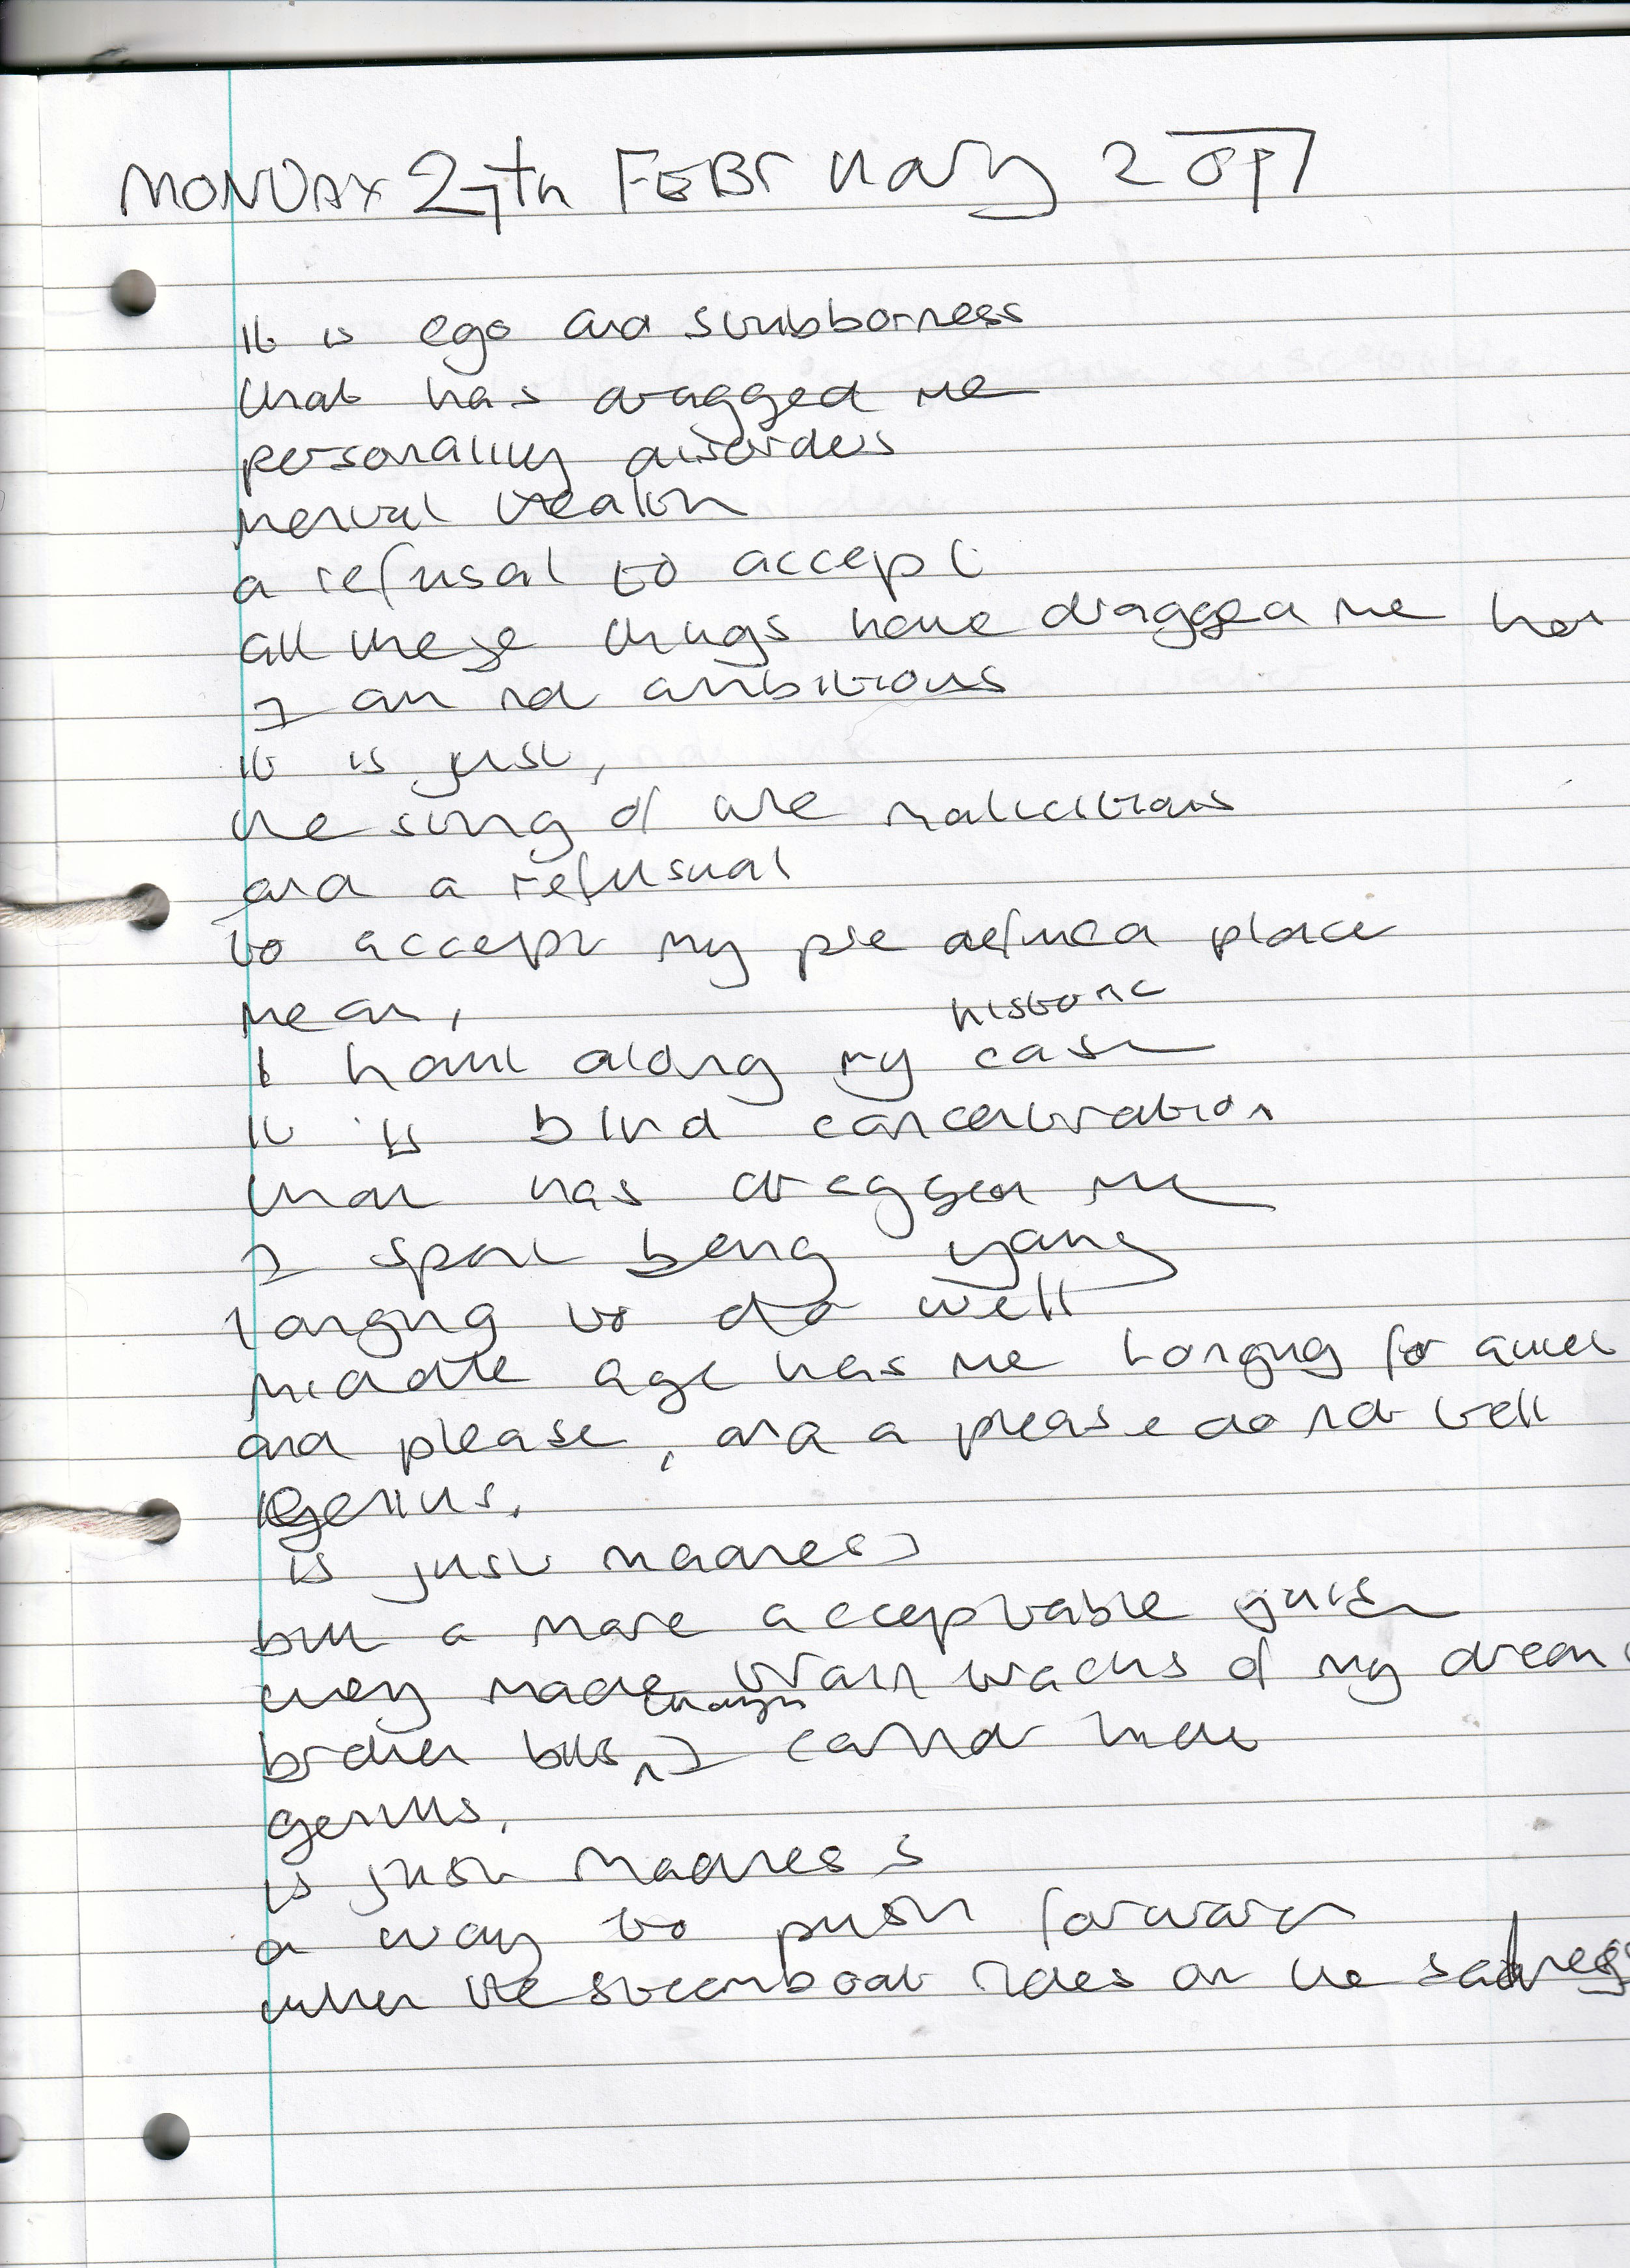 MONDAY 27th FEBRUARY 2017
It is ego and stubborness
that has dragged me
personality disorders
mental health
a refusal to accept
all these things have dragged me her
I am not ambitious
it is just,
the sting of the
and a refusual
to accept my pre defined place
mean,
historic
I haul along my case
it is blind concentration
that has dragged me
I spent being young
longing to do well
middle age has me longing for quiet
and please, and a please do not tell
genius,
is just madness
but a more acceptable guise
they made of my dream
enough
broken bits, I cannot
genius,
is just madness
a way to push forward
when the steamboat rides on the sadness